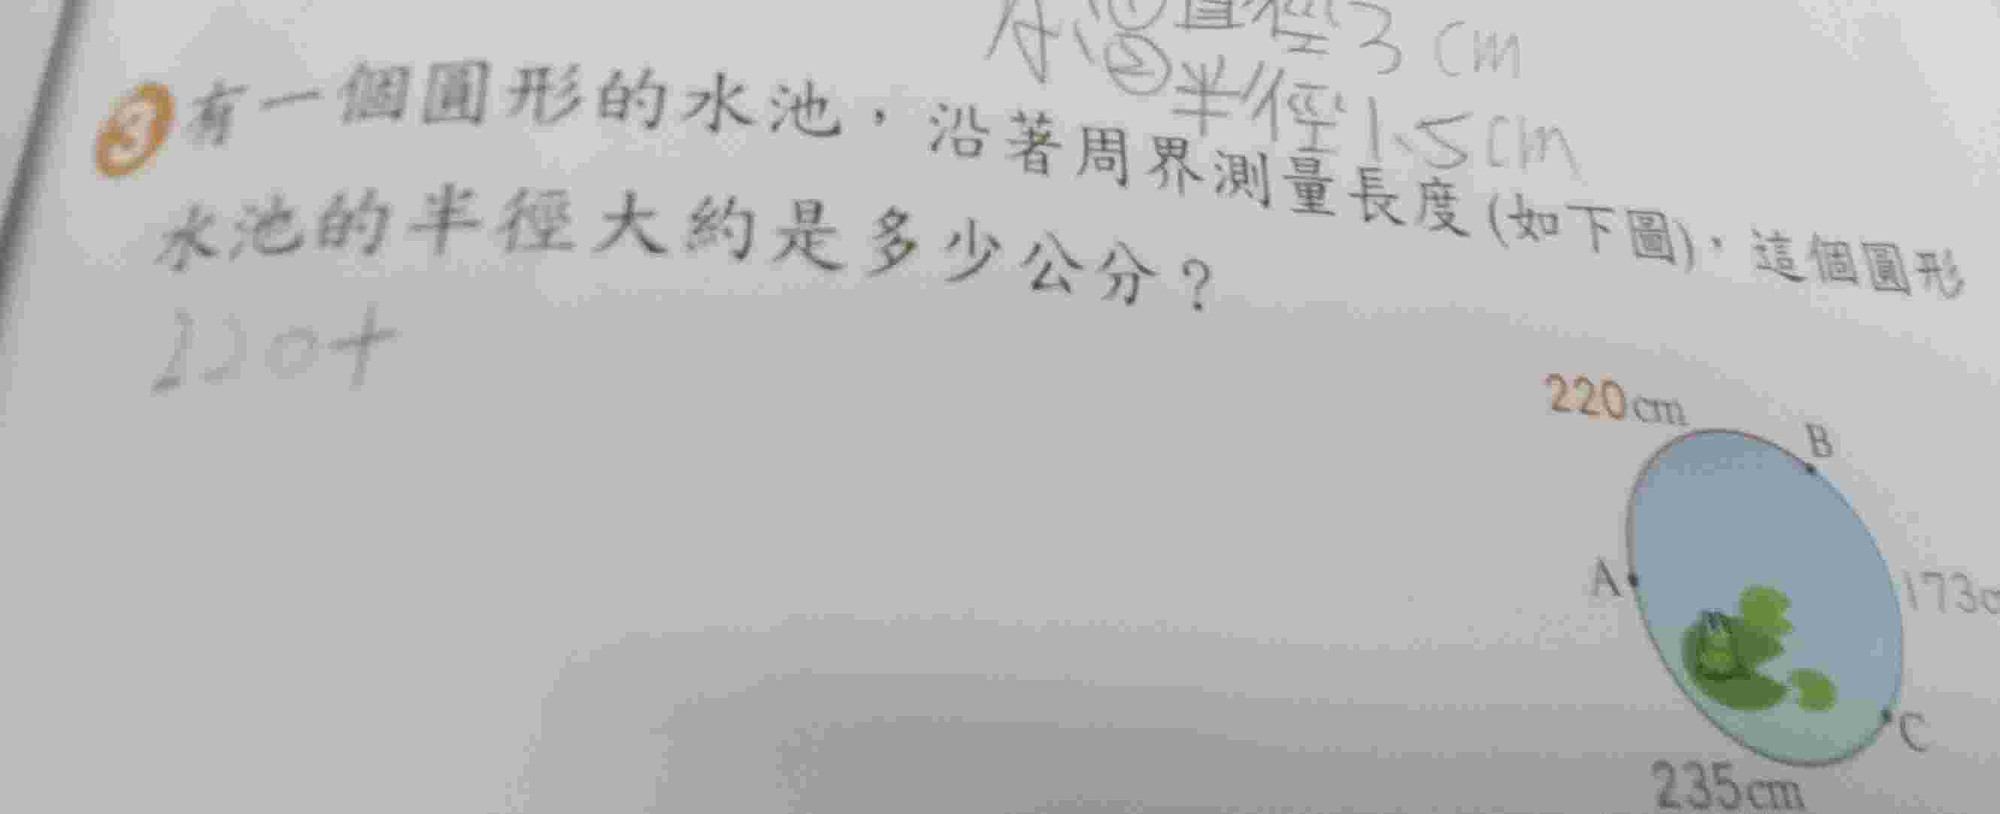 A、①直徑3cm
②半徑1.5cm
③有一個圓形的水池，沿著周界測量長度(如下圖)，這個圓形
水池的半徑大約是多少公分？
220+
220cm
B
A
173c
C
235cm